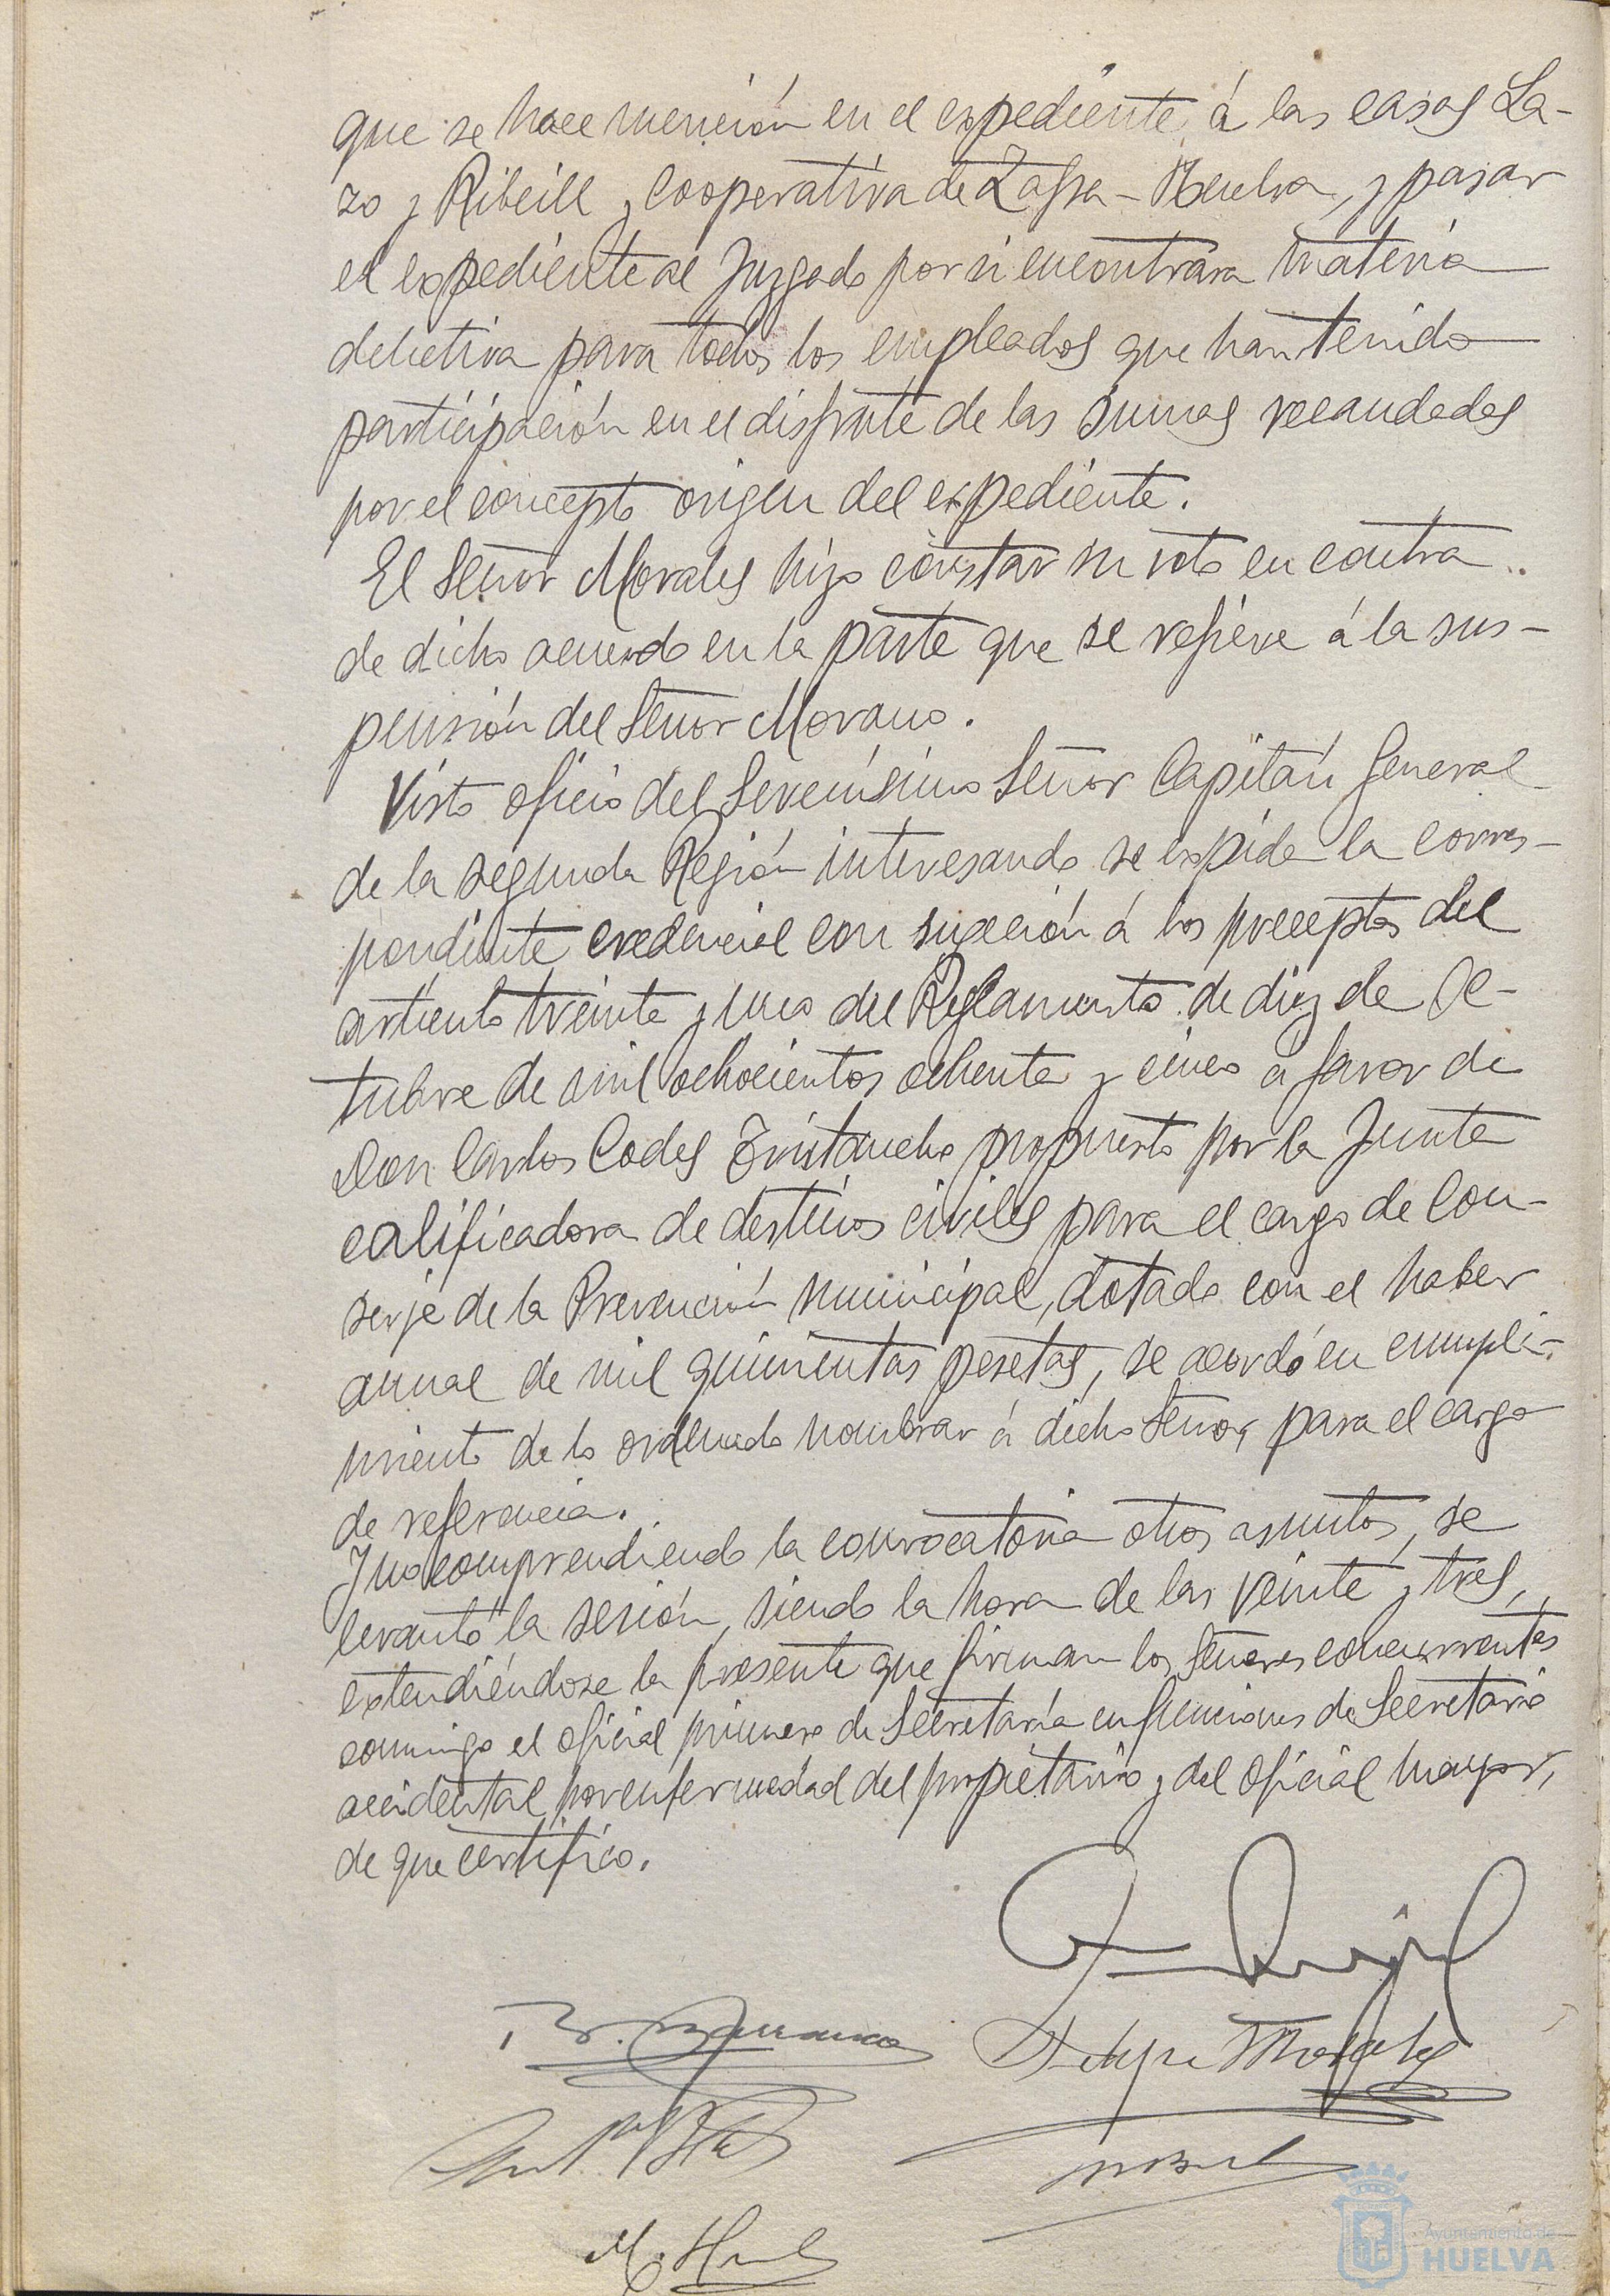 que se hace mención en el expediente á las casas La-
zo y Ribeill y Cooperativa de Zafra-Huelva, y pasar
el expediente al Juzgado por si encontrara materia
delictiva para todos los empleados que han tenido
participación en el disfrute de las sumas recaudadas
por el concepto origen del expediente.
El Señor Morales hizo constar su voto en contra
de dicho acuerdo en la parte que se refiere á la sus-
pensión del Señor Morano.
Visto oficio del Serenísimo Señor Capitán General
de la segunda Región interesando se expida la corres-
pondiente credencial con sujeción á los preceptos del
artículo treinta y uno del Reglamento de diez de Oc-
tubre de mil ochocientos ochenta y cinco á favor de
Don Carlos Codes Tristancho propuesto por la Junta
calificadora de destinos civiles para el cargo de Con-
serje de la Prevención municipal, dotado con el haber
anual de mil quinientas pesetas, se acordó en cumpli-
miento de lo ordenado nombrar á dicho Señor, para el cargo
de referencia.
Y no comprendiendo la convocatoria otros asuntos, se
levantó la sesión, siendo la hora de las veinte y tres,
extendiéndose la presente que firman los Señores concurrentes
conmigo el oficial primero de Secretaría en funciones de Secretario
accidental por enfermedad del propietario y del oficial mayor,
de que certifico.
Felipe Morales
Ayuntamiento de
HUELVA